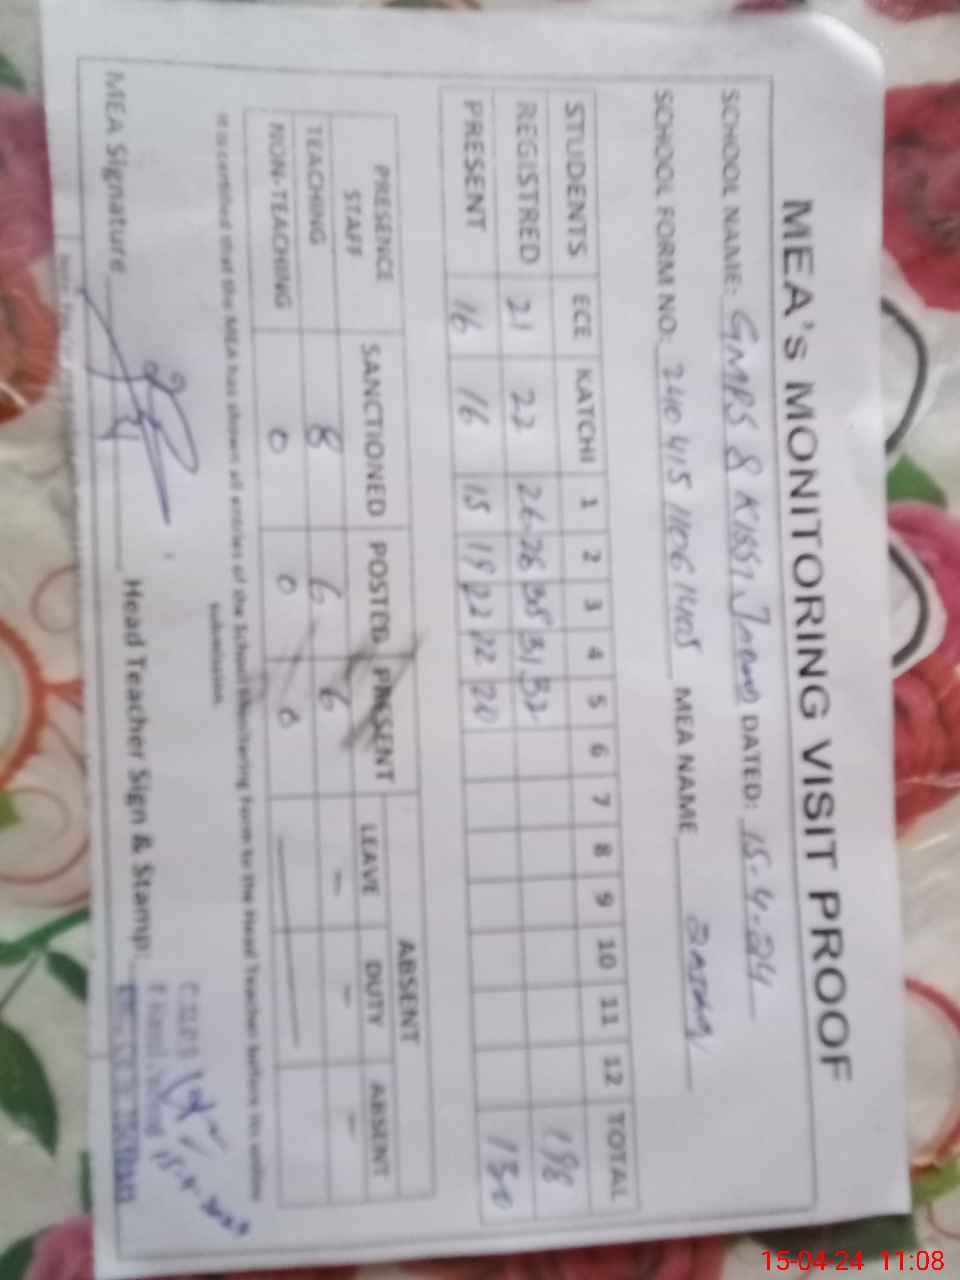 MEA's MONITORING VISIT PROOF
SCHOOL NAME: GMPS 8 Kissi DATED: 15-4-24
SCHOOL FORM NO: 240 415 MEA NAME
STUDENTS ECE KATCHI 1 2 3 4 5 6 7 8 9 10 11 12 TOTAL
REGISTRED 21 22 26 31 198
PRESENT 16 16 15 19 22 22 20 130
PRESENCE STAFF SANCTIONED POSTED PRESENT ABSENT
LEAVE DUTY ABSENT
TEACHING 8 6 6 - - -
NON-TEACHING 0 0 0
It is certified that the MEA has shown all entries of the School Monitoring Form to the Head Teacher before his online
submission.
MEA Signature Head Teacher Sign & Stamp:
15-04-24 11:08